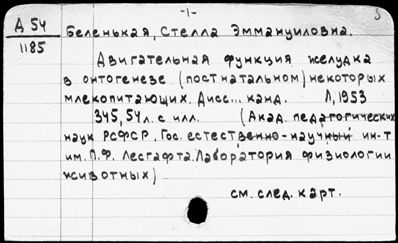 -1-
Д 54
1185
Беленькая, Стелла Эммануиловна.
Двигательная функция желудка
в онтогенезе (постнатальном) некоторых
млекопитающих. Дисс... канд. Л, 1953
345, 54 л. с илл. (Акад. педагогических
наук РСФСР. Гос. естественно-научный ин-т
им. П.Ф. Лесгафта. Лаборатория физиологии
животных)
см. след. карт.